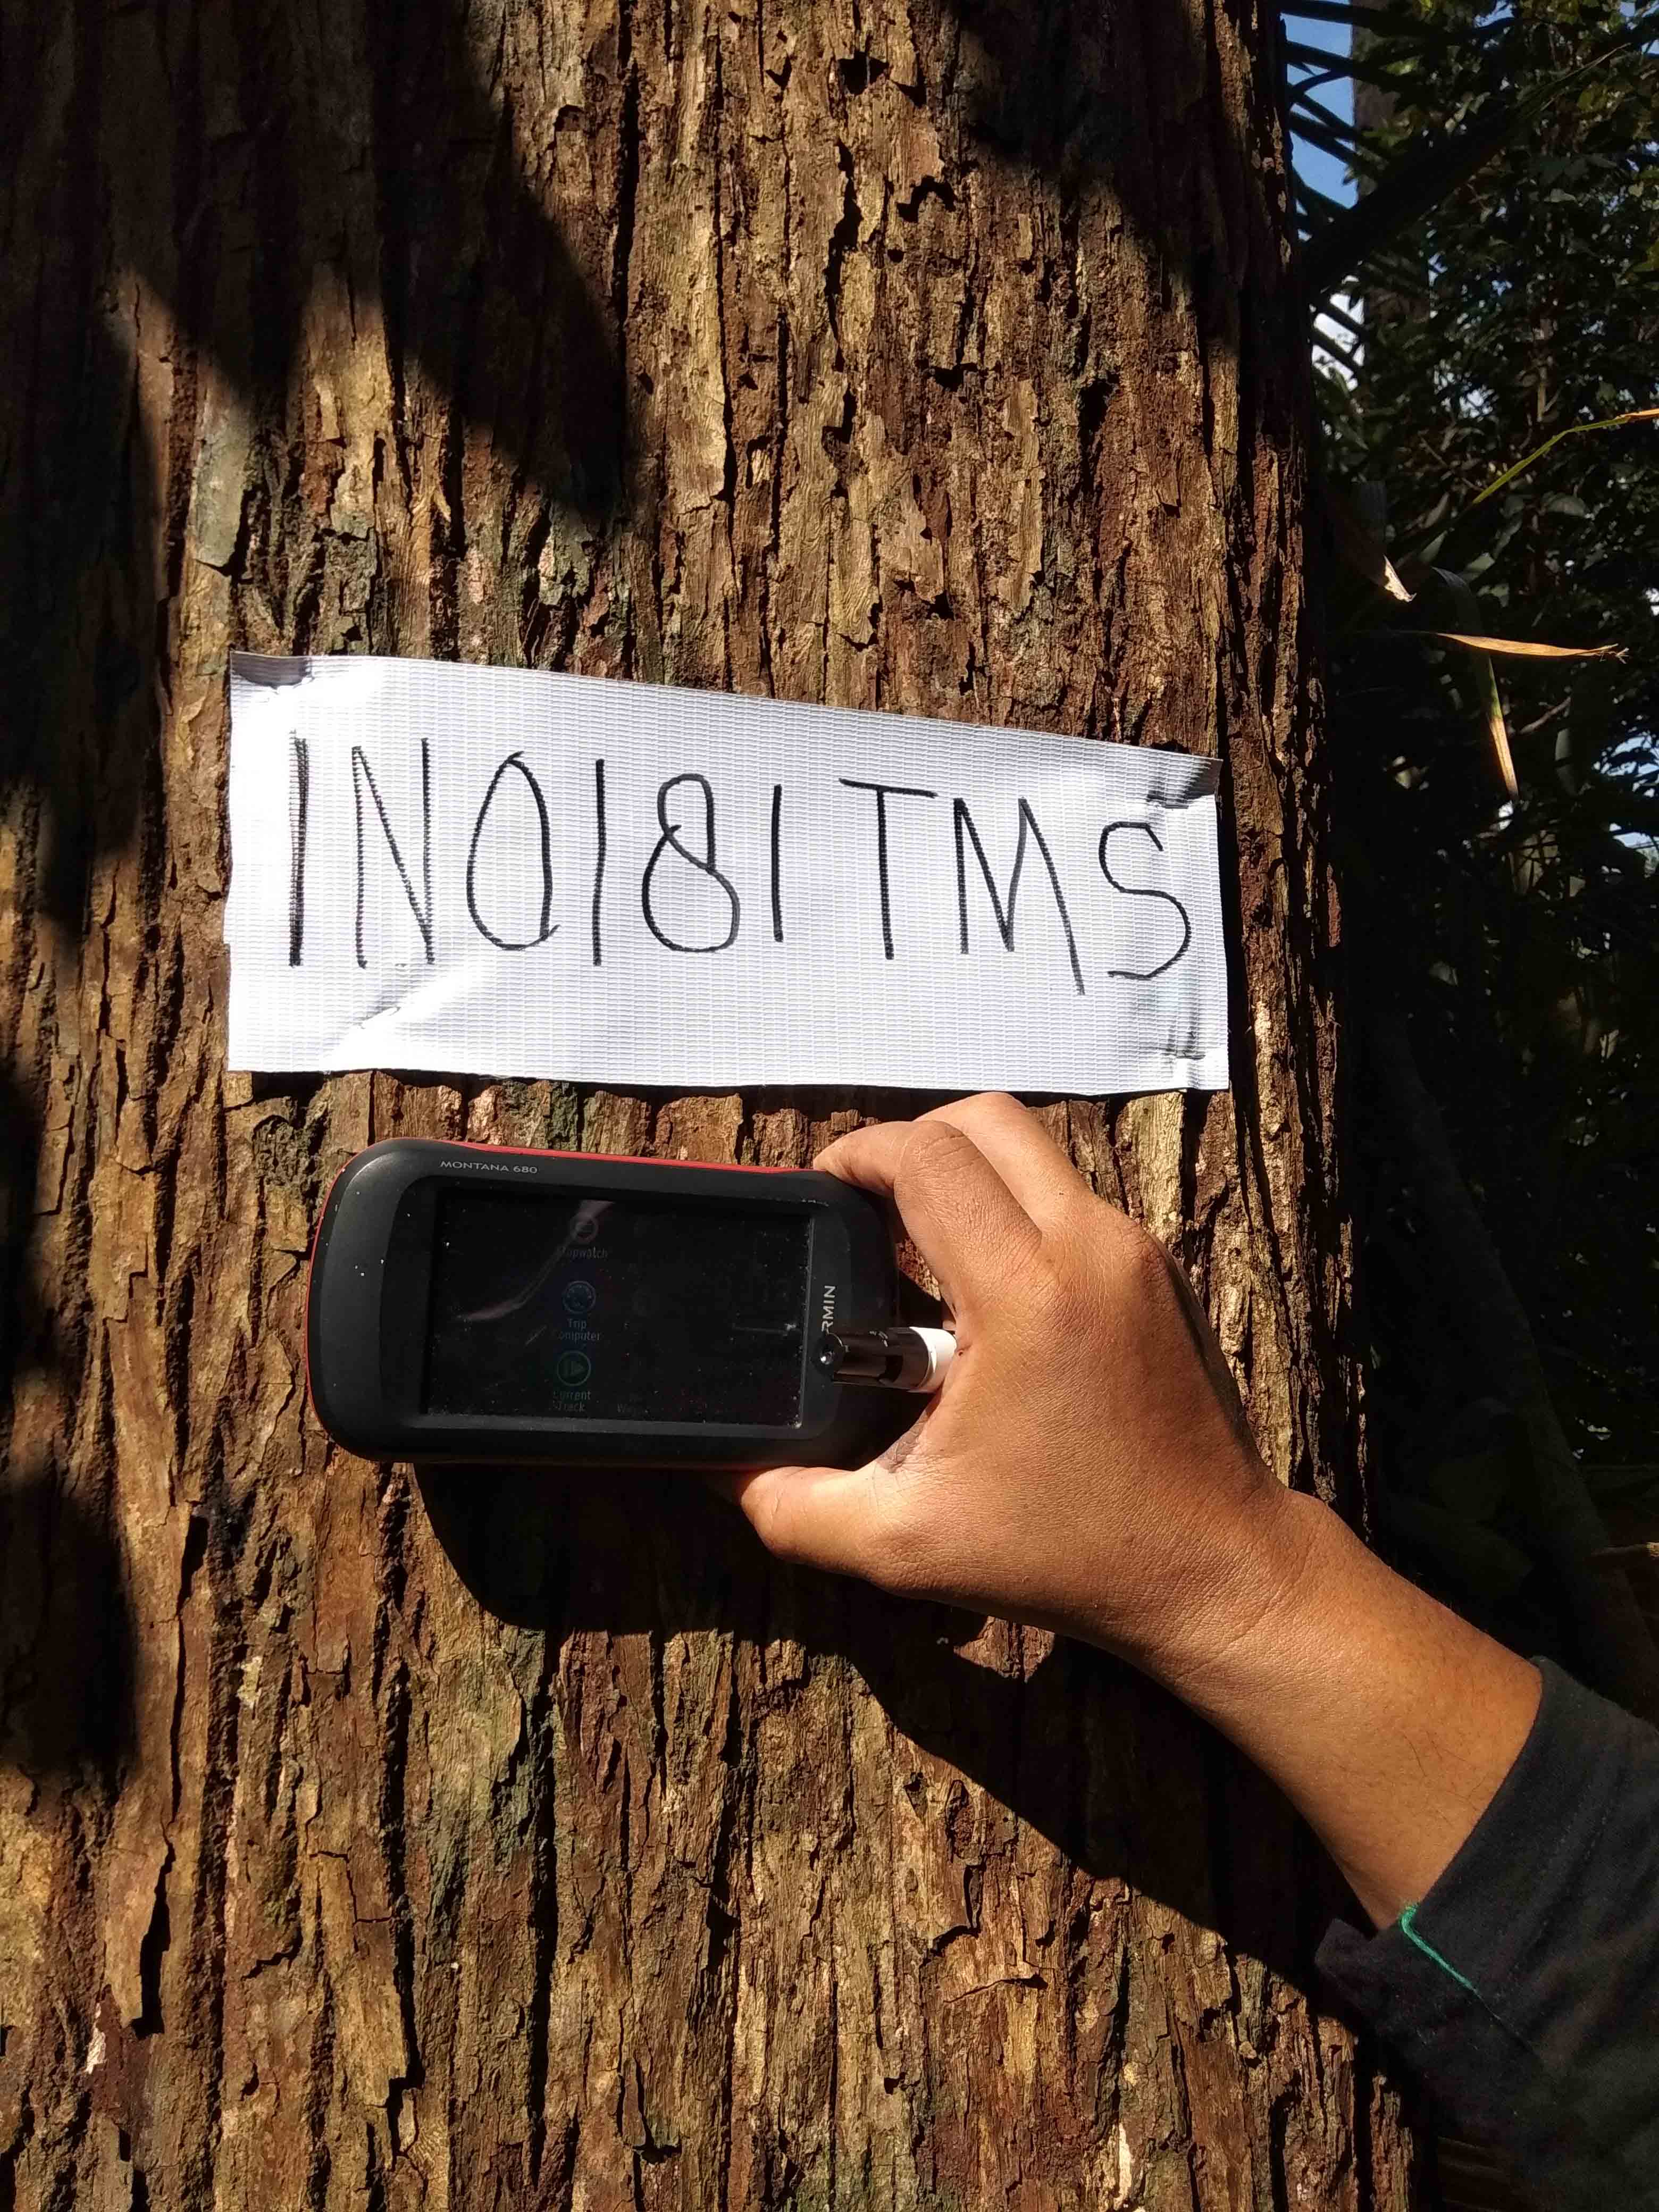 IN0181TMS
MONTANA 680
Stopwatch
Trip
Computer
Current
Track
RMIN